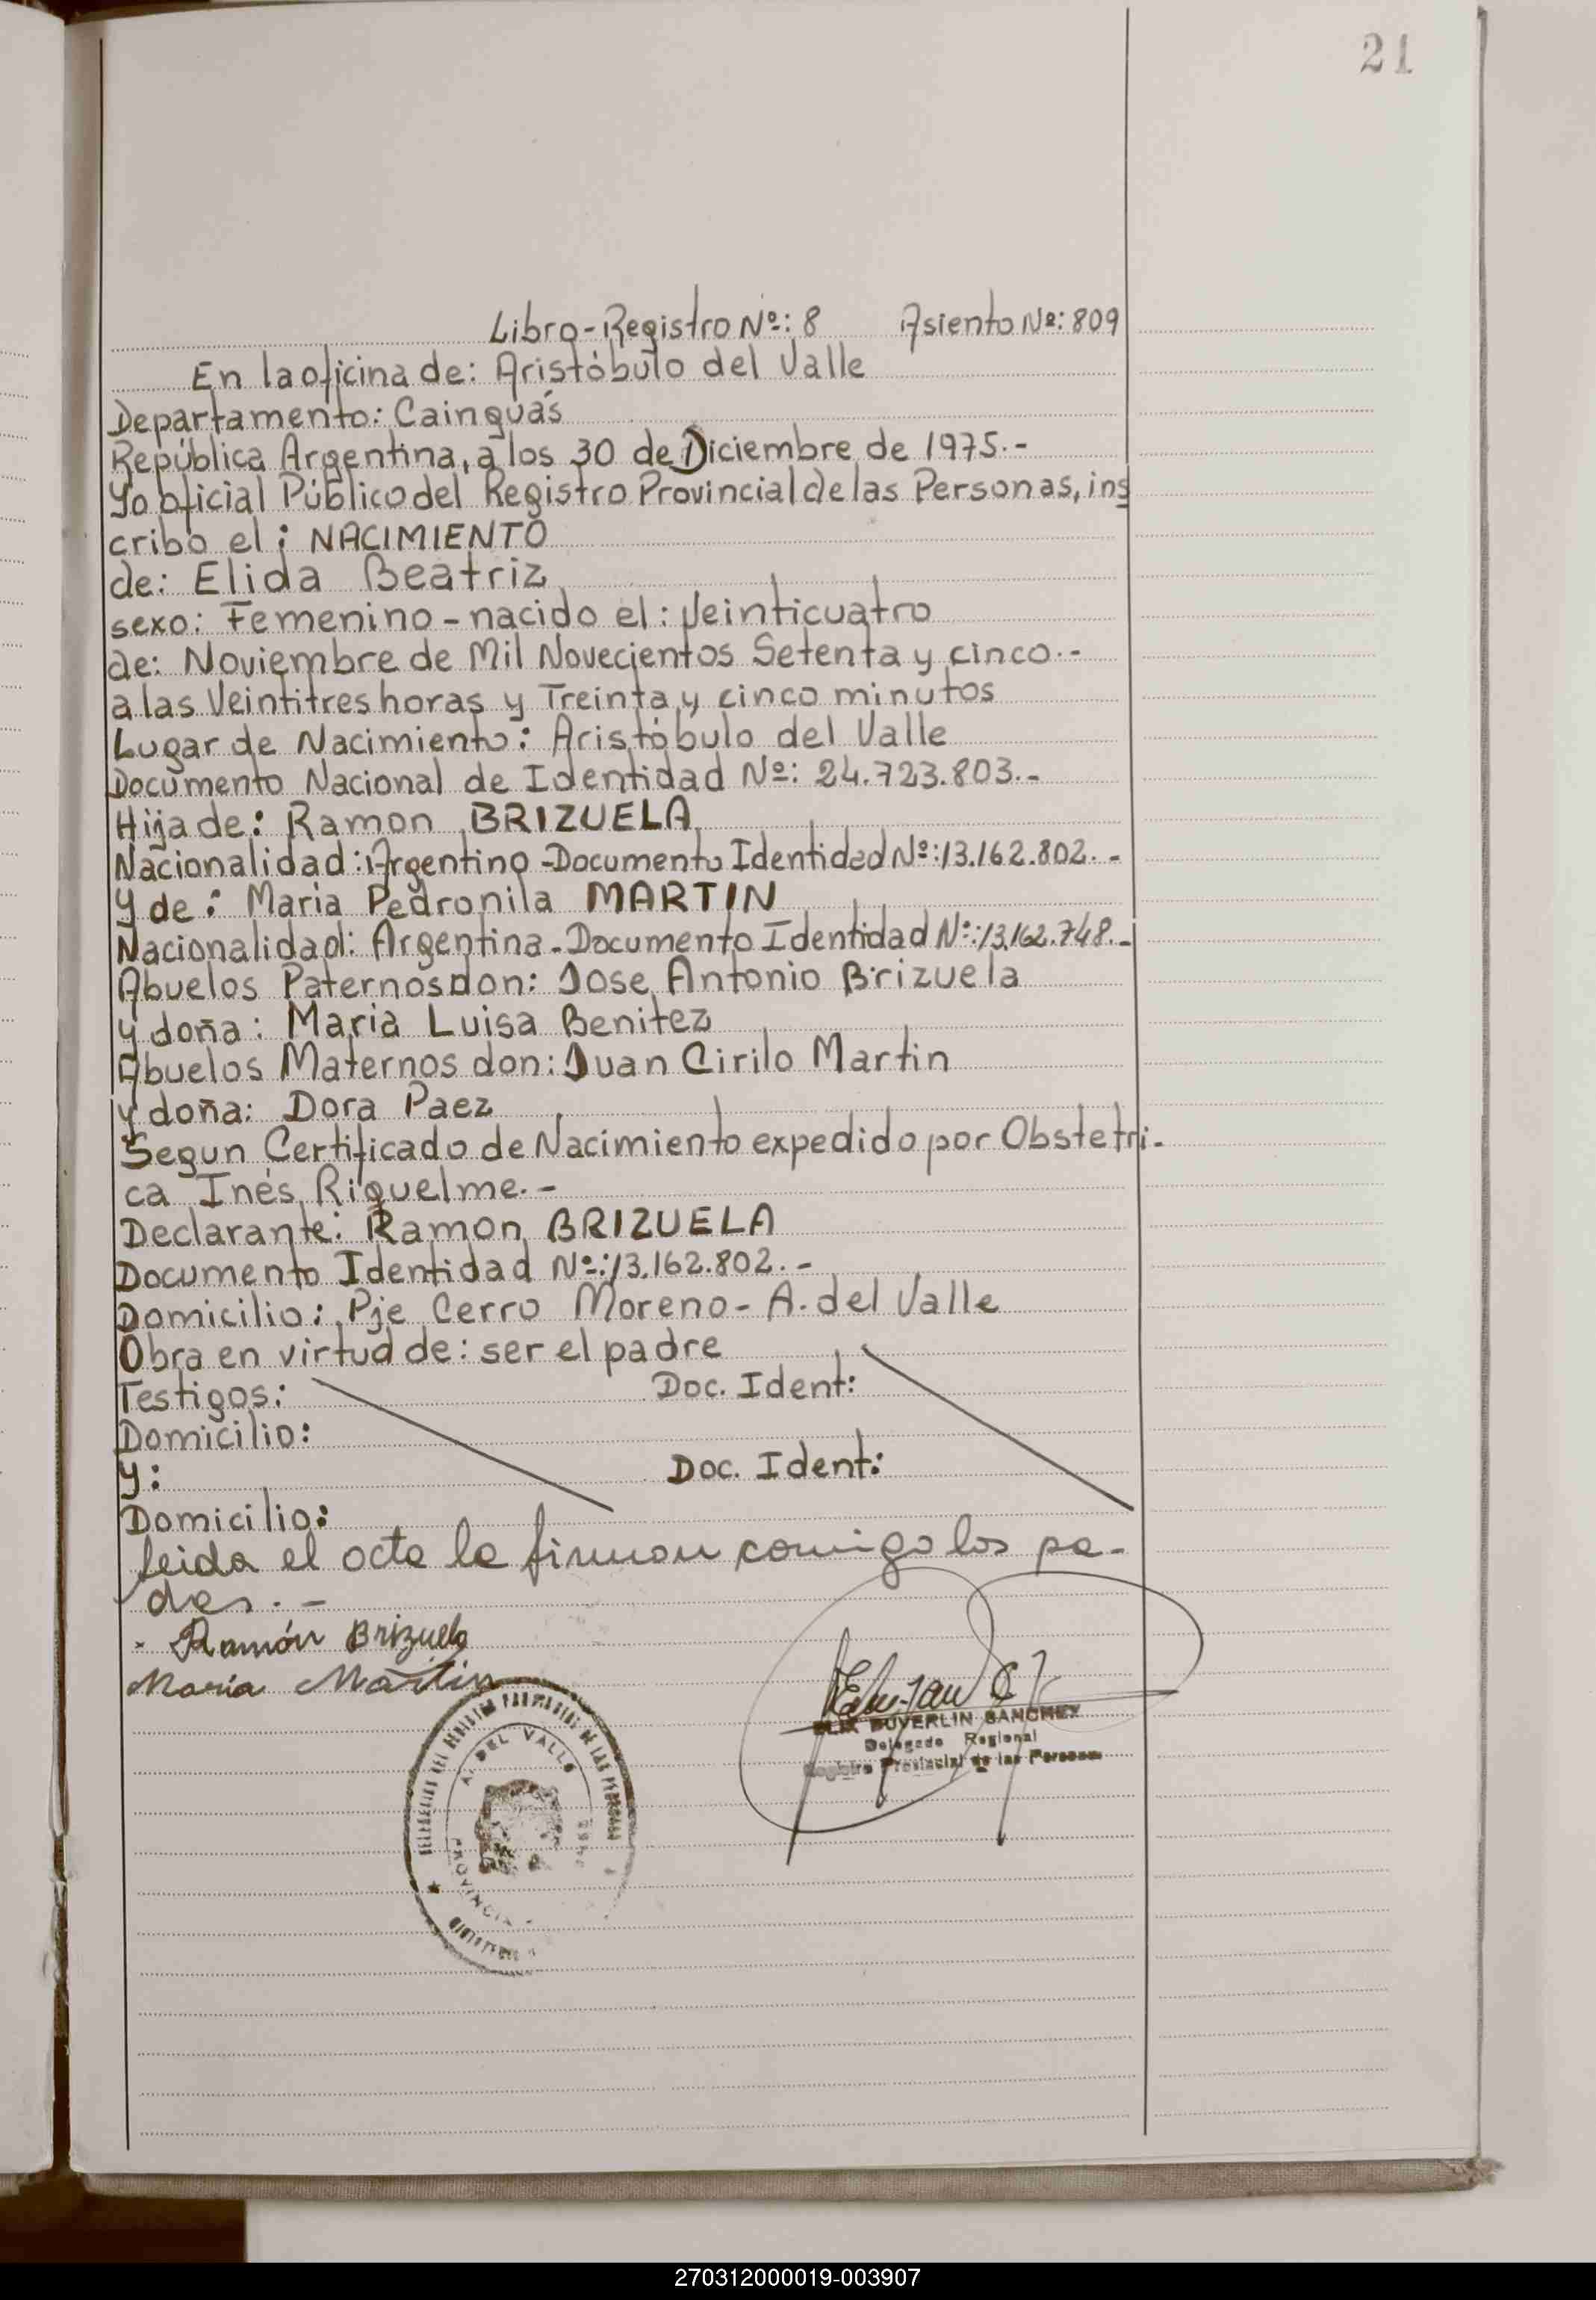 21
Libro-Registro Nº: 8 Asiento Nº: 809
En la oficina de: Aristóbulo del Valle
Departamento: Cainguás
República Argentina, a los 30 de Diciembre de 1975.-
Yo oficial Público del Registro Provincial de las Personas, ins
cribo el: NACIMIENTO
de: Elida Beatriz
sexo: Femenino - nacido el: Veinticuatro
de: Noviembre de Mil Novecientos Setenta y cinco.-
a las Veintitres horas y Treinta y cinco minutos
Lugar de Nacimiento: Aristóbulo del Valle
Documento Nacional de Identidad Nº: 24.723.803.-
Hija de: Ramon BRIZUELA
Nacionalidad: Argentino - Documento Identidad Nº: 13.162.802.-
y de: Maria Pedronila MARTIN
Nacionalidad: Argentina - Documento Identidad Nº: 13.162.748.-
Abuelos Paternos don: Jose Antonio Brizuela
y doña: Maria Luisa Benitez
Abuelos Maternos don: Juan Cirilo Martin
y doña: Dora Paez
Segun Certificado de Nacimiento expedido por Obstetri-
ca Inés Riquelme.-
Declarante: Ramon BRIZUELA
Documento Identidad Nº: 13.162.802.-
Domicilio: Pje Cerro Moreno - A. del Valle
Obra en virtud de: ser el padre
Testigos: Doc. Ident:
Domicilio:
y: Doc. Ident:
Domicilio:
leida el acta la firman comigo los pa-
dres.-
Ramón Brizuela
Maria Martin
DUVERLIN SANCHEZ
Delegado Regional
Registro Provincial de las Personas
DEL REGISTRO PROVINCIAL DE LAS PERSONAS
A. DEL VALLE
PROVINCIA
270312000019-003907